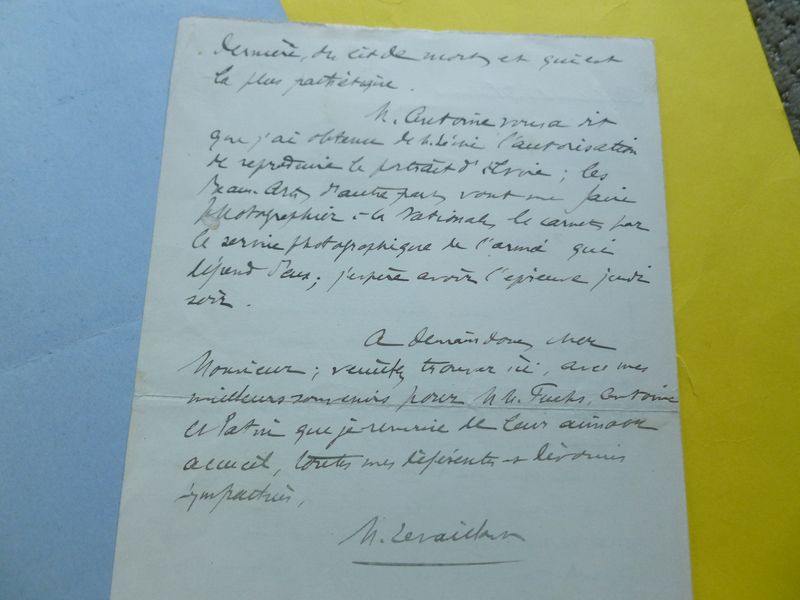 dernière, du lit de mort, et qui est
la plus pathétique.
M. Antoine vous a dit
que j'ai obtenu de M. l'autorisation
de reproduire le portrait d'Elvire ; les
Beaux-Arts d'autre part, vont me faire
photographier à la Nationale, le carnet par
le service photographique de l'armée qui
dépend d'eux ; j'espère avoir l'épreuve jeudi
soir.
A demain donc, cher
Monsieur ; veuillez trouver ici, avec mes
meilleurs souvenirs pour MM. Fuchs, Antoine
et Patin que je remercie de leur aimable
accueil, toutes mes déférentes et dévouées
sympathies,
M. Levaillant